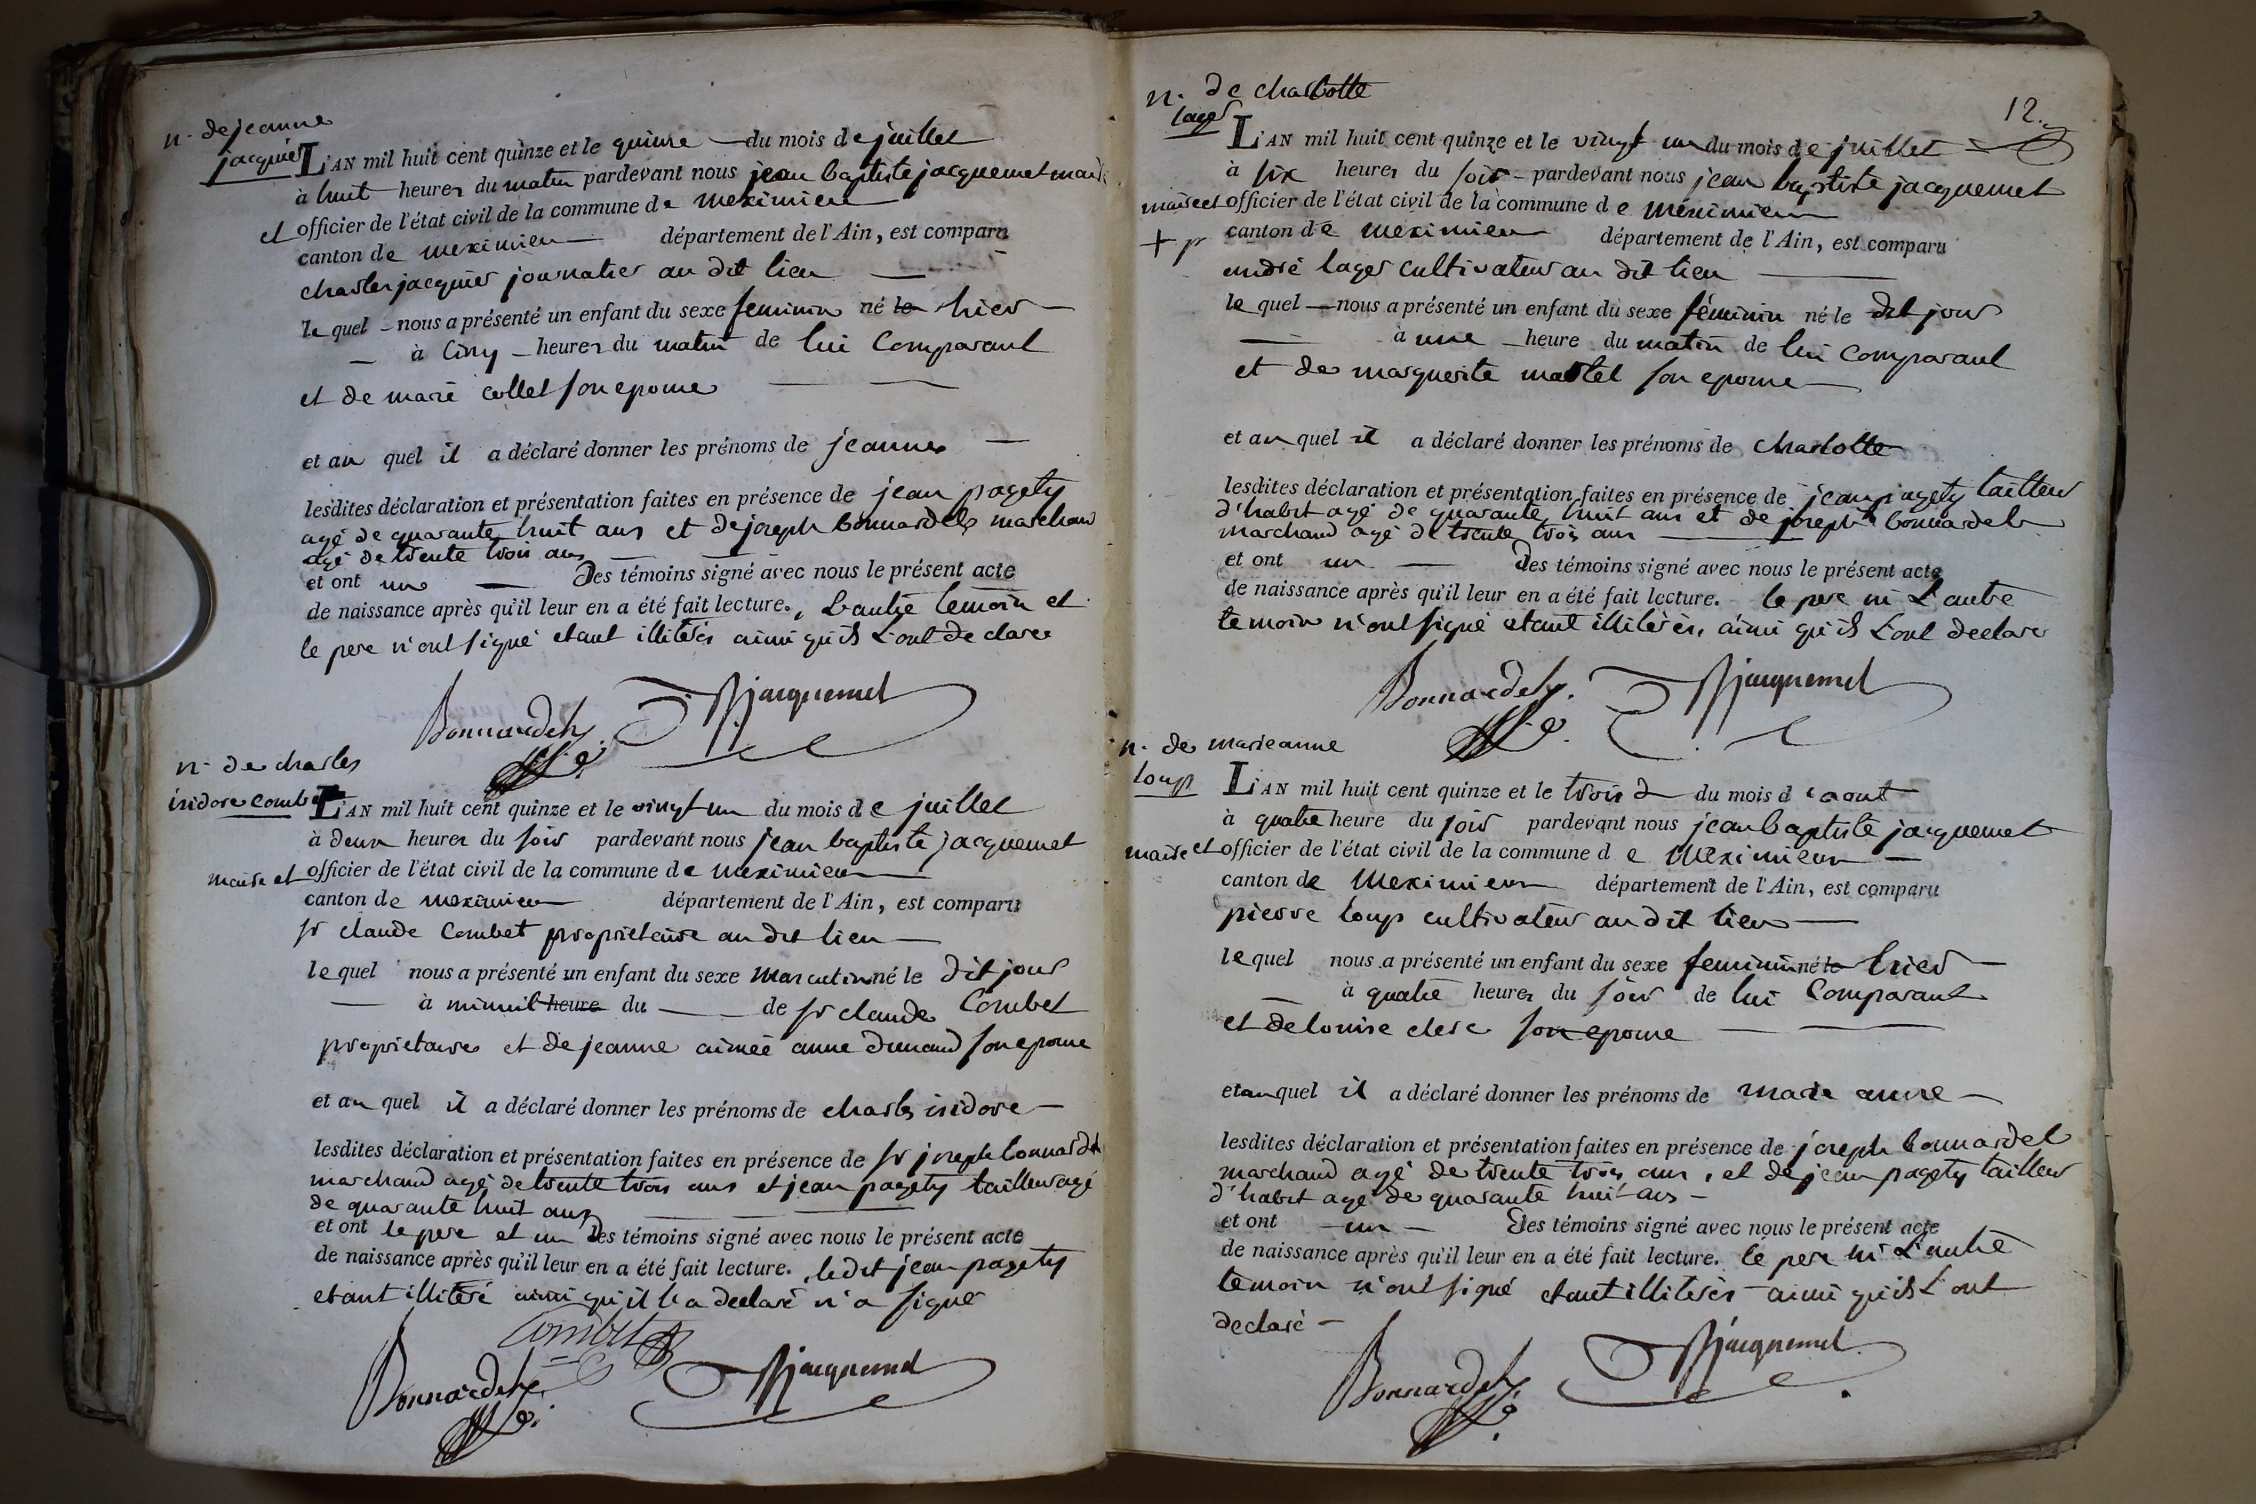 n. de jeanne
jacquier
L'AN mil huit cent quinze et le quinse du mois de juillet
à huit heures du matin pardevant nous jean baptiste jacquemet
et officier de l'état civil de la commune de meximieu
canton de meximieu département de l'Ain, est comparu
charles jacquier journalier au dit lieu
le quel nous a présenté un enfant du sexe feminin né le hier
à cinq heures du matin de lui Comparant
et de marie collet son epouse
et au quel il a déclaré donner les prénoms de jeanne
lesdites déclaration et présentation faites en présence de jean pagety
agé de quarante huit ans et de joseph bonnardel marchand
agé de trente trois ans
et ont un Des témoins signé avec nous le présent acte
de naissance après qu'il leur en a été fait lecture. L'autre temoin et
le pere n'ont signé etant illiterés ainsi qu'ils L'ont declaré
Bonnardel Jacquemet
n. de charles
isidore combet
L'AN mil huit cent quinze et le vingt un du mois de juillet
à deux heures du soir pardevant nous jean baptiste jacquemet
maire et officier de l'état civil de la commune de meximieu
canton de meximieu département de l'Ain, est comparu
sr claude Combet proprietaire au dit lieu
le quel nous a présenté un enfant du sexe masculin né le dit jour
à minuit heure du de sr claude Combet
proprietaire et de jeanne aimée anne dunand son epouse
et au quel il a déclaré donner les prénoms de charles isidore
lesdites déclaration et présentation faites en présence de sr joseph bonnardel
marchand agé de trente trois ans et jean pagety tailleur agé
de quarante huit ans
et ont le pere et un Des témoins signé avec nous le présent acte
de naissance après qu'il leur en a été fait lecture. ledit jean pagety
etant illiteré ainsi qu'il l'a declaré n'a signé
Combet
Bonnardel Jacquemet
12.
n. de charlotte
lager
L'AN mil huit cent quinze et le vingt un du mois de juillet
à six heures du soir pardevant nous jean baptiste jacquemet
maire et officier de l'état civil de la commune de méximieu
canton de meximieu département de l'Ain, est comparu
andré lager cultivateur au dit lieu
le quel nous a présenté un enfant du sexe féminin né le dit jour
à une heure du matin de lui comparant
et de marguerite martel son epouse
et au quel il a déclaré donner les prénoms de charlotte
lesdites déclaration et présentation faites en présence de jean pagety tailleur
d'habit agé de quarante huit ans et de joseph bonnardel
marchand agé de trente trois ans
et ont un Des témoins signé avec nous le présent acte
de naissance après qu'il leur en a été fait lecture. le pere ni L'autre
temoin n'ont signé etant illiterés, ainsi qu'ils L'ont declaré
Bonnardel Jacquemet
n. de marieanne
loup
L'AN mil huit cent quinze et le trois du mois d'aout
à quatre heure du soir pardevant nous jean baptiste jacquemet
maire et officier de l'état civil de la commune de meximieu
canton de Meximieu département de l'Ain, est comparu
pierre loup cultivateur au dit lieu
le quel nous a présenté un enfant du sexe feminin né le hier
à quatre heures du soir de lui Comparant
et de louise clerc son epouse
et au quel il a déclaré donner les prénoms de marie anne
lesdites déclaration et présentation faites en présence de joseph bonnardel
marchand agé de trente trois ans, et de jean pagety tailleur
d'habit agé de quarante huit ans
et ont un Des témoins signé avec nous le présent acte
de naissance après qu'il leur en a été fait lecture. le pere ni L'autre
temoin n'ont signé etant illiterés ainsi qu'ils L'ont
declaré
Bonnardel Jacquemet